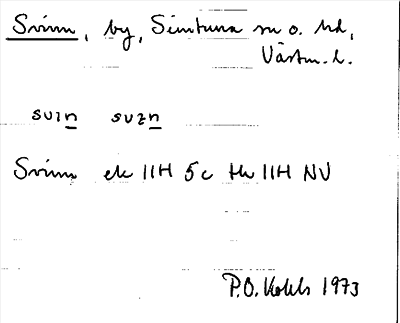 Svinn, by, Simtuna sn o. hd,
Västm. l.
svin svin
Svinn ek 11H 5c th 11H NV
P.O. 1973